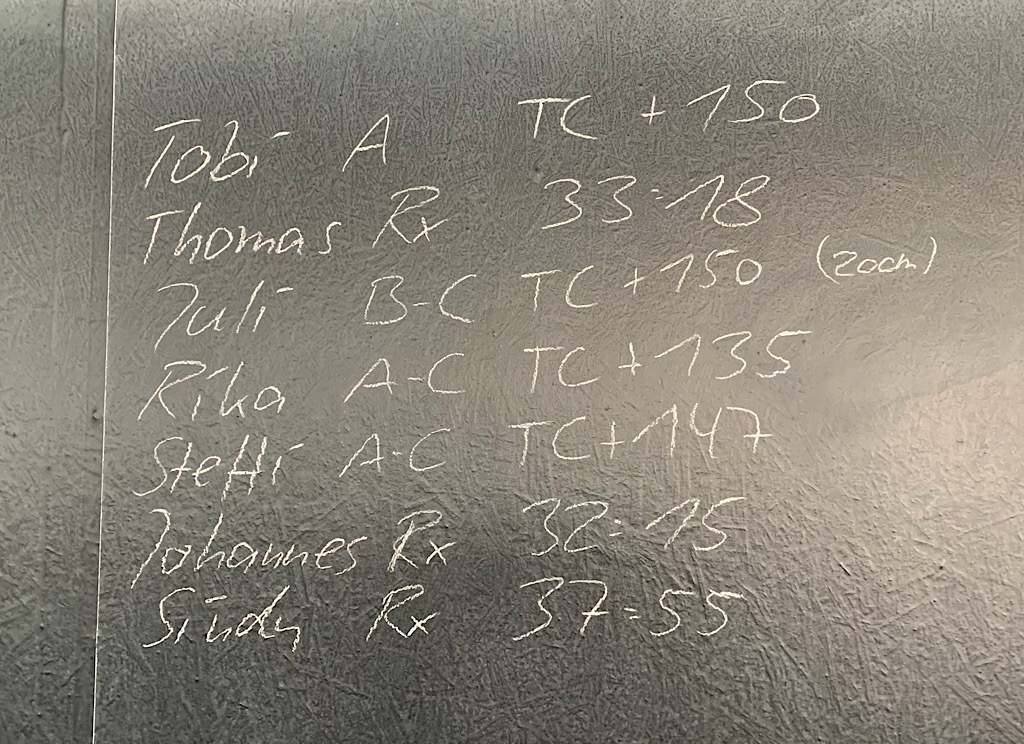 Tobi A TC + 150
Thomas Rx 33:18
Juli B-C TC + 150 (20cm)
Rika A-C TC + 135
Steffi A-C TC + 147
Johannes Rx 32:15
Rx 37:55